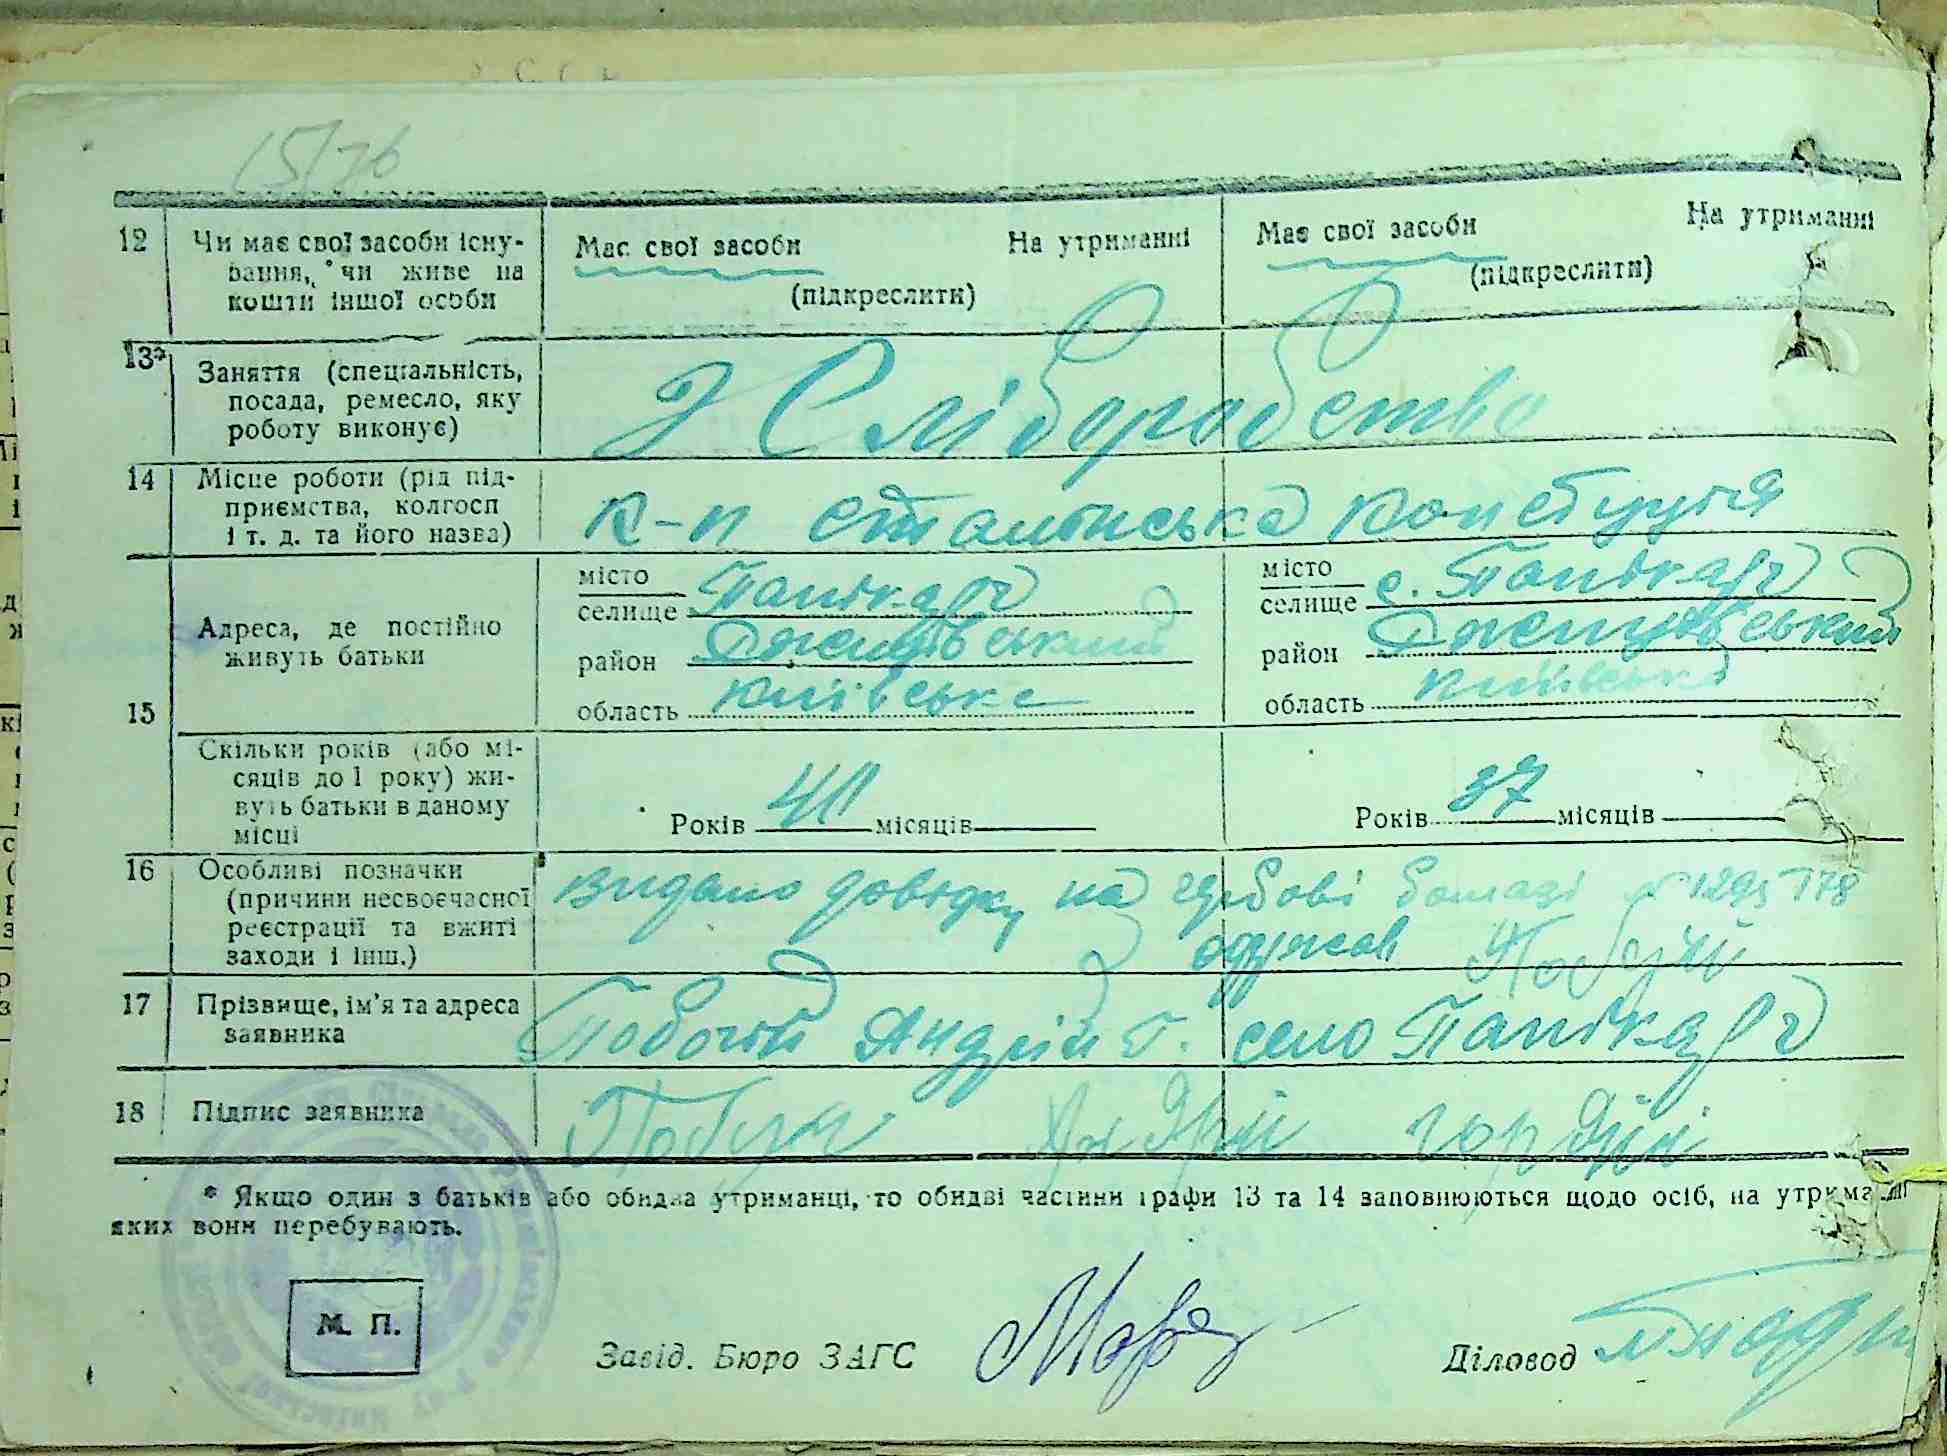 15/76
12 Чи має свої засоби існу-
вання, чи живе на
кошти іншої особи
Має свої засоби На утриманні
(підкреслити)
Має свої засоби На утриманні
(підкреслити)
13* Заняття (спеціальність,
посада, ремесло, яку
роботу виконує)
Хліборобство
14 Місце роботи (рід під-
приємства, колгосп
і т. д. та його назва)
к-п сталінська конституція
15 Адреса, де постійно
живуть батьки
місто
селище Папікарч
район
область київська
місто
селище с. Папікарч
район
область київська
Скільки років (або мі-
сяців до 1 року) жи-
вуть батьки в даному
місці
Років 40 місяців
Років 37 місяців
16 Особливі позначки
(причини несвоєчасної
реєстрації та вжиті
заходи і інш.)
видано довідку на гербові бомазі № 1295178
одержав
17 Прізвище, ім'я та адреса
заявника
Андрій Г. село Папікарч
18 Підпис заявника
Андрій Гордій
* Якщо один з батьків або обидва утриманці, то обидві частини графи 13 та 14 заповнюються щодо осіб, на утриманні
яких вони перебувають.
М. П.
Завід. Бюро ЗАГС
Діловод